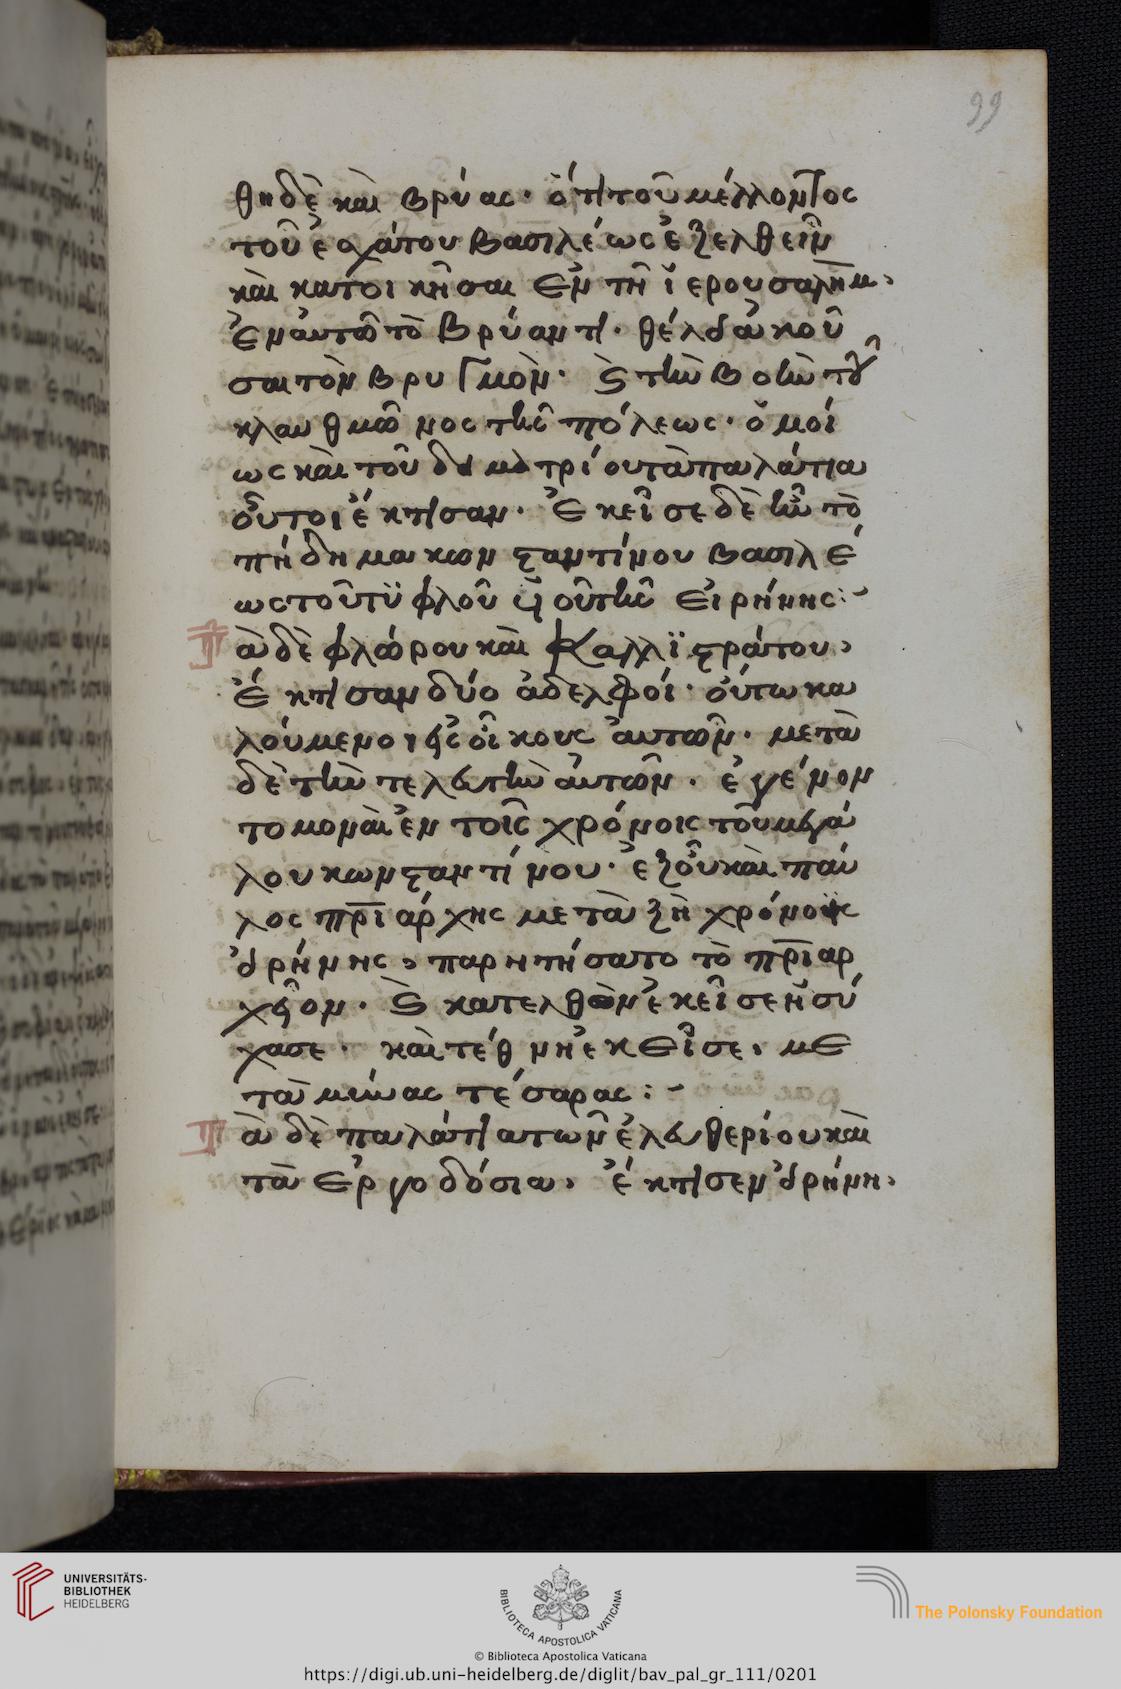 99
θη δὲ καὶ Βρύας· ὅτι τοῦ μέλλοντος
τοῦ ἐσχάτου βασιλέως ἐξελθεῖν
καὶ κατοικῆσαι ἐν τῆ ἱερουσαλὴμ,
ἐν αὐτῶ τὸ Βρύαντι· θέλει ἀκοῦ
σαι τὸν βρυγμὸν· καὶ τὴν βοὴν τοῦ
κλαυθμῶνος τῆς πόλεως· ὁμοί
ως καὶ τοῦ δαματρίου τὰ παλάτια
οὗτοι ἔκτισαν· Ἐκεῖσε δὲ ἦν τὸ
πήδημα κωνσταντίνου βασιλέ
ως τοῦ τυφλοῦ υἱοῦ τῆς Εἰρήνης:~
Τὰ δὲ φλώρου καὶ Καλλιστράτου,
ἔκτισαν δύο ἀδελφοί· οὕτω κα
λούμενοι εἰς οἴκους αὐτῶν· μετὰ
δὲ τὴν τελευτὴν αὐτῶν· ἐγένον
το μοναὶ ἐν τοῖς χρόνοις τοῦ μεγά
λου κωνσταντίνου· ἐξ οὗ καὶ παῦ
λος πριάρχης μετὰ ξη χρόνους
εἰρήνης, παρητήσατο τὸ πριαρ
χεῖον· καὶ κατελθὼν ἐκεῖσε ἡσύ
χασε· καὶ τέθνη ἐκεῖσε, με
τὰ μῆνας τέσαρας:~
Τὰ δὲ παλάτια τῶν ἐλευθερίου καὶ
τὰ Ἐργοδόσια, ἔκτισεν εἰρήνη,
UNIVERSITÄTS-
BIBLIOTHEK
HEIDELBERG
BIBLIOTECA APOSTOLICA VATICANA
The Polonsky Foundation
© Biblioteca Apostolica Vaticana
https://digi.ub.uni-heidelberg.de/diglit/bav_pal_gr_111/0201